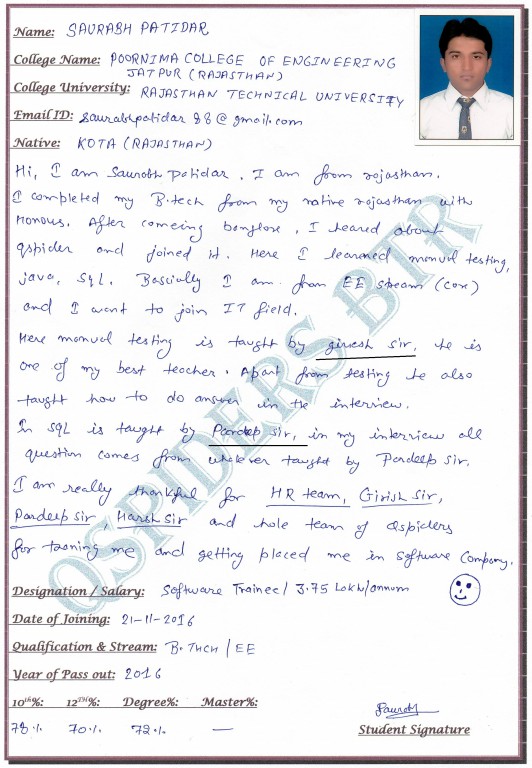 Name: SAURABH PATIDAR
College Name: POORNIMA COLLEGE OF ENGINEERING
JATPUR (RAJASTHAN)
College University: RAJASTHAN TECHNICAL UNIVERSITY
Email ID: saurabhpatidar88@gmail.com
Native: KOTA (RAJASTHAN)
Hi, I am Saurabh Patidar. I am from rajasthan.
I completed my B.tech from my native rajasthan with
Honours. After comeing banglore, I heared about
qspider and joined it. Here I learned manual testing,
java, SQL. Bascially I am from EE stream (core)
and I want to join IT field.
Here manual testing is taught by girish sir, he is
one of my best teacher. Apart from testing he also
taught how to do answer in the interview.
In SQL is taught by Pardeep sir, in my interview all
question comes from whatever taught by Pardeep Sir.
I am really thankful for HR team, Girish Sir,
Pardeep Sir, Harsh Sir and hole team of Qspiders
for traning me and getting placed me in software company.
Designation / Salary: Software Trainee / 3.75 Lakh/annum
Date of Joining: 21-11-2016
Qualification & Stream: B.Tech / EE
Year of Pass out: 2016
10th%: 12TH%: Degree%: Master%:
78% 70% 72% —
Saurabh
Student Signature
QSPIDERS BTR